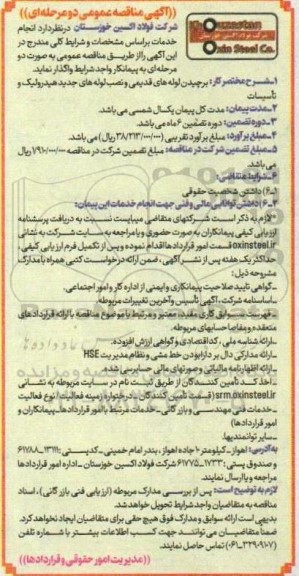 ((آگهی مناقصه عمومی دو مرحله ای))
Khouzestan
Oxin Steel Co.
شرکت فولاد اکسین خوزستان در نظر دارد انجام
خدمات براساس مشخصات و شرایط کلی مندرج در
این آگهی را از طریق مناقصه عمومی به صورت دو
مرحله ای به پیمانکار واجد شرایط واگذار نماید.
۱_شرح مختصر کار: برچیدن لوله های قدیمی و نصب لوله های جدید هیدرولیک و
تأسیسات
۲_مدت پیمان: مدت کل پیمان یکسال شمسی می باشد.
۳_دوره تضمین: دوره تضمین ۶ ماه می باشد.
۴_مبلغ برآورد: مبلغ برآورد تقریبی (۳۸/۲۱۳/۰۰۰/۰۰۰ ریال) می باشد.
۵_مبلغ تضمین شرکت در مناقصه: مبلغ تضمین شرکت در مناقصه ۱/۹۱۰/۰۰۰/۰۰۰ ریال
می باشد.
۶_شرایط متقاضی:
۱_۶) داشتن شخصیت حقوقی
۲_۶) داشتن توانایی مالی و فنی جهت انجام خدمات این پیمان:
*لازم به ذکر است شرکتهای متقاضی میبایست نسبت به دریافت پرسشنامه
ارزیابی کیفی پیمانکاران به صورت حضوری و یا مراجعه به سایت شرکت به نشانی
oxinsteel.ir قسمت امور قراردادها اقدام نموده و پس از تکمیل فرم ارزیابی کیفی،
حداکثر یک هفته پس از نشر آگهی، ضمن ارائه درخواست کتبی همراه با مدارک
مشروحه ذیل:
_گواهی تایید صلاحیت پیمانکاری و ایمنی از اداره کار و امور اجتماعی.
_اساسنامه شرکت، آگهی تأسیس و آخرین تغییرات مربوطه.
_فهرست سوابق کاری مفید، معتبر و مرتبط با موضوع مناقصه با ارائه قراردادهای
منعقده و مفاصا حسابهای مربوطه.
_ارائه شناسه ملی، کد اقتصادی و گواهی ارزش افزوده.
_ارائه مدارکی دال بر دارا بودن خط مشی و نظام مدیریت HSE
_ارائه اظهارنامه مالیاتی و صورتهای مالی حسابرسی شده.
_اخذ کد تأمین کنندگان از طریق ثبت نام در سایت مربوطه به نشانی
srm.oxinsteel.ir (قسمت تأمین کنندگان_در خواره زمینه فعالیت/ نوع فعالیت
_خدمات فنی مهندسی و بازرگانی_خدمات مرتبط با امور قراردادها_پیمانکاران و
امور قراردادها)
_سایر توانمندیها.
به آدرس: اهواز_کیلومتر ۱۰ جاده اهواز، بندر امام خمینی_کدپستی: ۱۳۱۱۱_۶۱۷۸۸
و صندوق پستی: ۱۷۳۳_۶۱۷۷۵ شرکت فولاد اکسین خوزستان_اداره امور قراردادها
مراجعه و یا ارسال نمایند.
لازم به توضیح است: پس از بررسی مدارک مربوطه (ارزیابی فنی بازرگانی)، اسناد
مناقصه به متقاضیان واجد شرایط تحویل خواهد شد.
بدیهی است ارائه سوابق و مدارک فوق هیچ حقی برای متقاضیان ایجاد نخواهد کرد.
ضمناً متقاضیان می توانند جهت کسب اطلاعات بیشتر با شماره تلفن
تماس حاصل نمایند.
((مدیریت امور حقوقی و قراردادها))